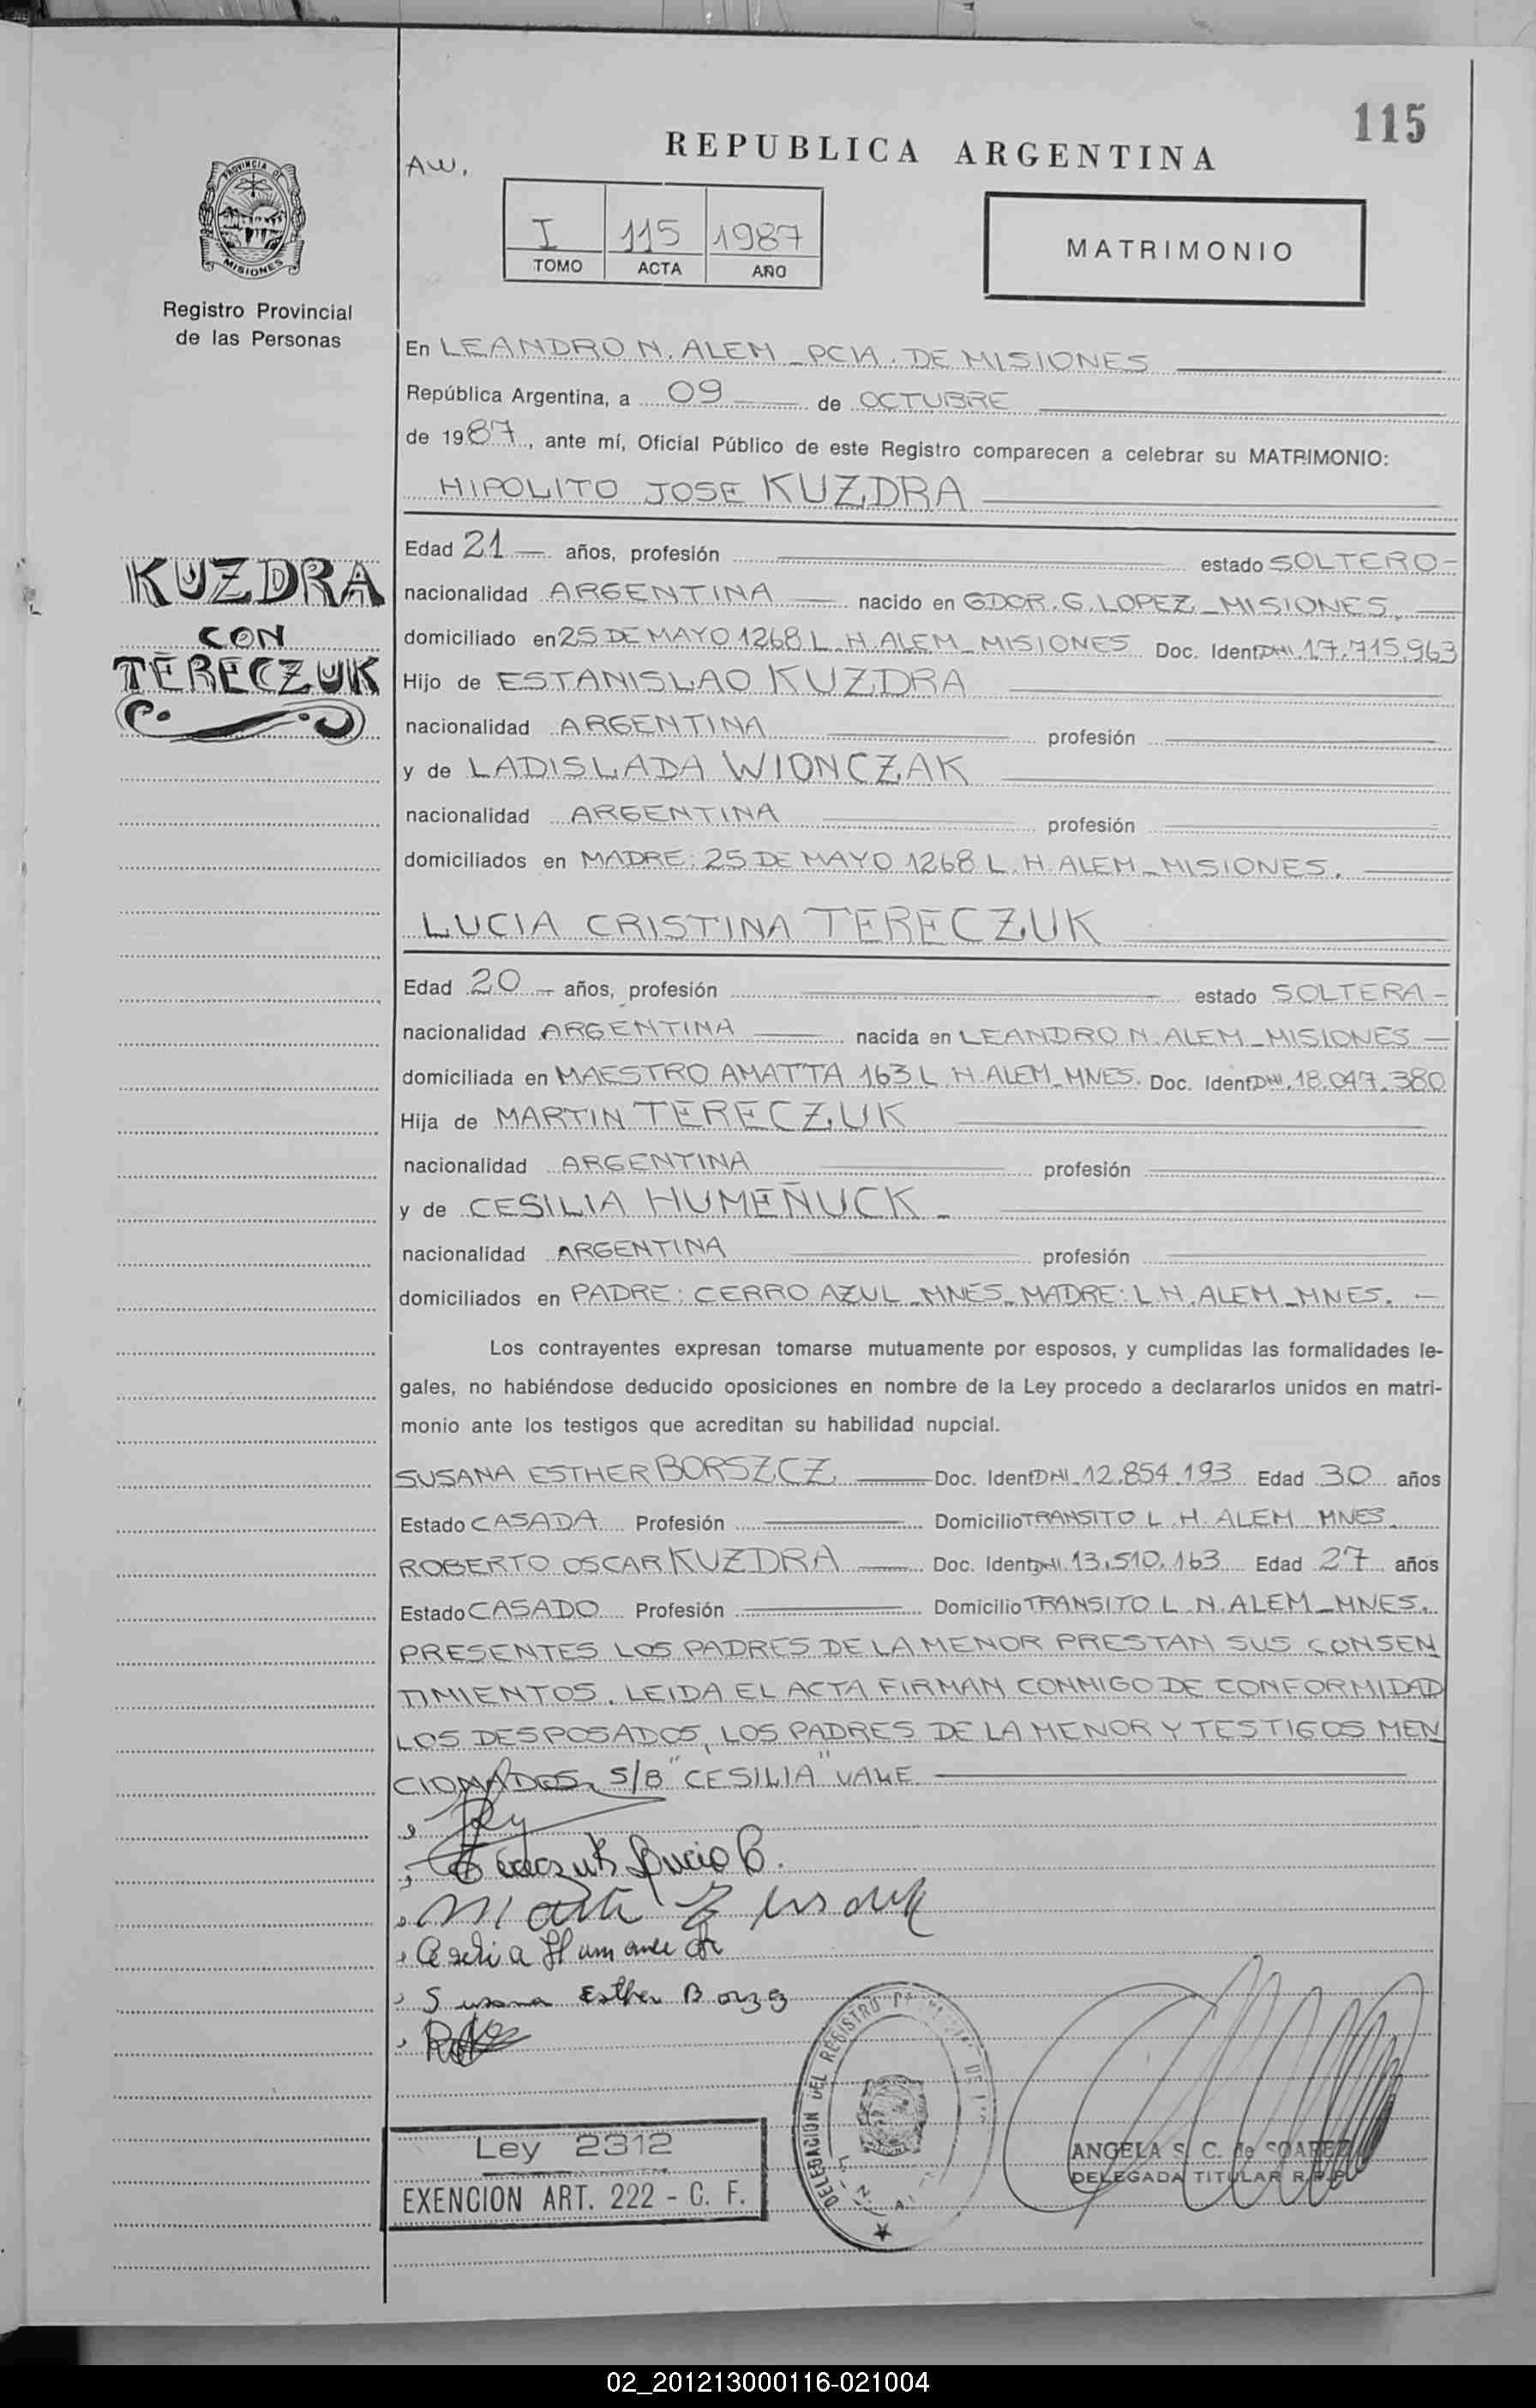 115
REPUBLICA ARGENTINA
AW.
PROVINCIA DE
MISIONES
Registro Provincial
de las Personas
I 115 1987
TOMO ACTA AÑO
MATRIMONIO
En LEANDRO N. ALEM _ PCIA. DE MISIONES
República Argentina, a 09 de OCTUBRE
de 1987, ante mí, Oficial Público de este Registro comparecen a celebrar su MATRIMONIO:
HIPOLITO JOSE KUZDRA
Edad 21 años, profesión estado SOLTERO
nacionalidad ARGENTINA nacido en GDOR. G. LOPEZ _ MISIONES
domiciliado en 25 DE MAYO 1268 L. N. ALEM _ MISIONES Doc. Ident. DNI. 17.715.963
KUZDRA
CON
TERECZUK
Hijo de ESTANISLAO KUZDRA
nacionalidad ARGENTINA profesión
y de LADISLADA WIONCZAK
nacionalidad ARGENTINA profesión
domiciliados en MADRE: 25 DE MAYO 1268 L. N. ALEM _ MISIONES.
LUCIA CRISTINA TERECZUK
Edad 20 años, profesión estado SOLTERA
nacionalidad ARGENTINA nacida en LEANDRO N. ALEM _ MISIONES
domiciliada en MAESTRO AMATTA 163 L. N. ALEM _ MNES. Doc. Ident. DNI. 18.047.380
Hija de MARTIN TERECZUK
nacionalidad ARGENTINA profesión
y de CESILIA HUMEÑUCK
nacionalidad ARGENTINA profesión
domiciliados en PADRE: CERRO AZUL _ MNES _ MADRE: L. N. ALEM _ MNES.
Los contrayentes expresan tomarse mutuamente por esposos, y cumplidas las formalidades le-
gales, no habiéndose deducido oposiciones en nombre de la Ley procedo a declararlos unidos en matri-
monio ante los testigos que acreditan su habilidad nupcial.
SUSANA ESTHER BORSZCZ Doc. Ident. DNI. 12.854.193 Edad 30 años
Estado CASADA Profesión Domicilio TRANSITO L. N. ALEM _ MNES
ROBERTO OSCAR KUZDRA Doc. Ident. DNI. 13.510.163 Edad 27 años
Estado CASADO Profesión Domicilio TRANSITO L. N. ALEM _ MNES.
PRESENTES LOS PADRES DE LA MENOR PRESTAN SUS CONSEN
TIMIENTOS. LEIDA EL ACTA FIRMAN CONMIGO DE CONFORMIDAD
LOS DESPOSADOS, LOS PADRES DE LA MENOR Y TESTIGOS MEN
CIONADOS. S/B "CESILIA" VALE
Tereczuk Lucia C.
Susana Esther
DELEGACION DEL REGISTRO
Ley 2312
EXENCION ART. 222 - C. F.
ANGELA S. C. de SOAREZ
DELEGADA TITULAR R.P.P.
02_201213000116-021004